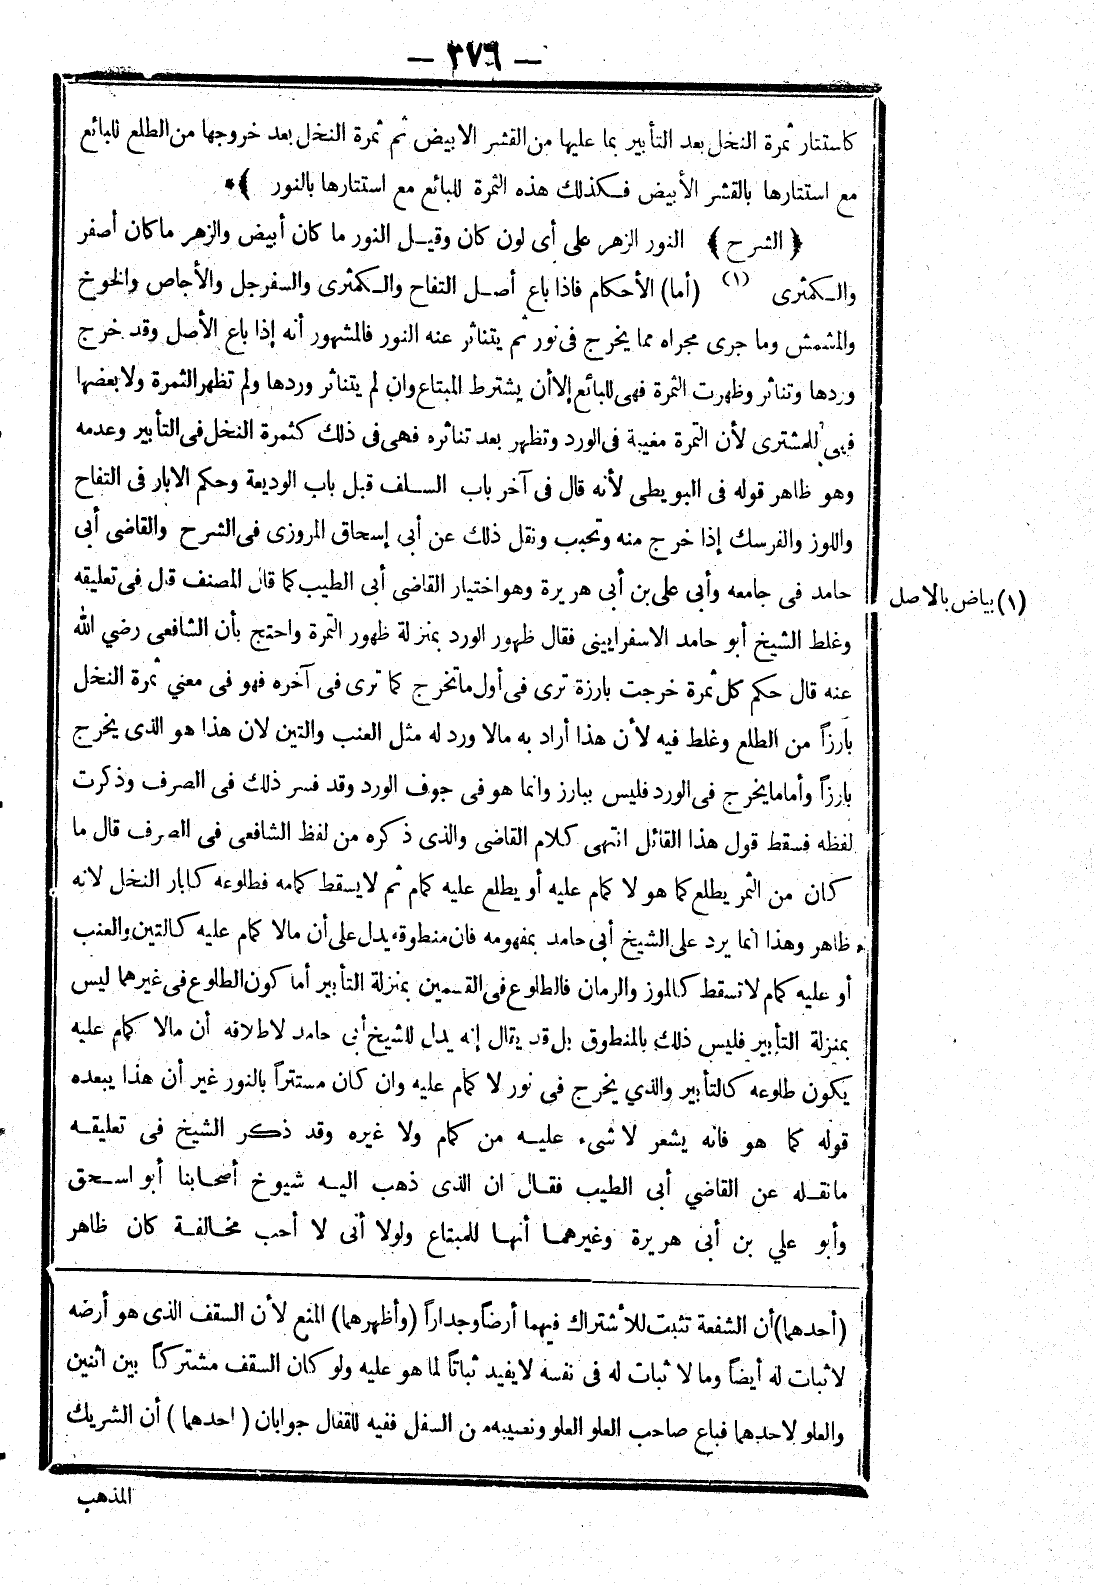 — ٣٧٦ —
كاستتار ثمرة النخل بعد التأبير بما عليها من القشر الابيض ثم ثمرة النخل بعد خروجها من الطلع للبائع
مع استتارها بالقشر الأبيض فكذلك هذه الثمرة للبائع مع استتارها بالنور ﴾*
﴿ الشرح ﴾ النور الزهر على أى لون كان وقيل النور ما كان أبيض والزهر ماكان أصفر
والكمثرى (١) (أما) الأحكام فاذا باع أصل التفاح والكمثرى والسفرجل والأجاص والخوخ
والمشمش وما جرى مجراه مما يخرج فى نور ثم يتناثر عنه النور فالمشهور أنه إذا باع الأصل وقد خرج
وردها وتناثر وظهرت الثمرة فهى للبائع إلا أن يشترط المبتاع وان لم يتناثر وردها ولم تظهر الثمرة ولا بعضها
فهى للمشترى لأن الثمرة مغيبة فى الورد وتظهر بعد تناثره فهى فى ذلك كثمرة النخل فى التأبير وعدمه
وهو ظاهر قوله فى البويطى لأنه قال فى آخر باب السلف قبل باب الوديعة وحكم الابار فى التفاح
واللوز والفرسك إذا خرج منه وتحبب ونقل ذلك عن أبى إسحاق المروزى فى الشرح والقاضى أبى
حامد فى جامعه وأبى على بن أبى هريرة وهو اختيار القاضى أبى الطيب كما قال المصنف قال فى تعليقه
(١) بياض بالاصل
وغلط الشيخ أبو حامد الاسفراينى فقال ظهور الورد بمنزلة ظهور الثمرة واحتج بأن الشافعى رضي الله
عنه قال حكم كل ثمرة خرجت بارزة ترى فى أول ماتخرج كما ترى فى آخره فهو فى معني ثمرة النخل
بارزاً من الطلع وغلط فيه لأن هذا أراد به مالا ورد له مثل العنب والتين لان هذا هو الذى يخرج
بارزاً وأما مايخرج فى الورد فليس ببارز وانما هو فى جوف الورد وقد فسر ذلك فى الصرف وذكرت
لفظه فسقط قول هذا القائل انتهى كلام القاضى والذى ذكره من لفظ الشافعى فى الصرف قال ما
كان من الثمر يطلع كما هو لا كمام عليه أو يطلع عليه كمام ثم لايسقط كمامه فطلوعه كابار النخل لانه
ظاهر وهذا انما يرد على الشيخ أبى حامد بمفهومه فان منطوقه يدل على أن مالا كمام عليه كالتين والعنب
أو عليه كمام لا تسقط كالموز والرمان فالطلوع فى القسمين بمنزلة التأبير أما كون الطلوع فى غيرهما ليس
بمنزلة التأبير فليس ذلك بالمنطوق بل قد يقال إنه يدل للشيخ أبى حامد لاطلاقه أن مالا كمام عليه
يكون طلوعه كالتأبير والذي يخرج فى نور لا كمام عليه وان كان مستتراً بالنور غير أن هذا يبعده
قوله كما هو فانه يشعر لا شىء عليه من كمام ولا غيره وقد ذكر الشيخ فى تعليقه
مانقله عن القاضي أبى الطيب فقال ان الذى ذهب اليه شيوخ أصحابنا أبو اسحق
وأبو علي بن أبى هريرة وغيرهما أنها للمبتاع ولولا أنى لا أحب مخالفة كان ظاهر
(أحدهما) أن الشفعة تثبت للأشتراك فيهما أرضاً وجداراً (وأظهرهما) المنع لأن السقف الذى هو أرضه
لا ثبات له أيضاً وما لا ثبات له فى نفسه لايفيد ثباتاً لما هو عليه ولو كان السقف مشتركاً بين اثنين
والعلو لاحدهما فباع صاحب العلو العلو ونصيبه من السفل ففيه للقفال جوابان (احدهما) أن الشريك
المذهب